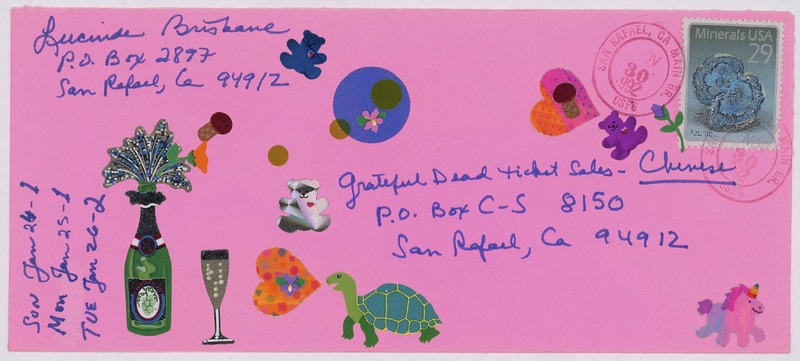 Lucinde Briskane
P.O. Box 2897
San Rafael, Ca 94912
Minerals USA
29
Azurite
SAN RAFAEL, CA MAIN BR.
30
1992
USPS
Grateful Dead ticket Sales - Chinese
P.O. Box C-S 8150
San Rafael, Ca 94912
SUN Jan 24-1
Mon Jan 25-1
TUE Jan 26-2